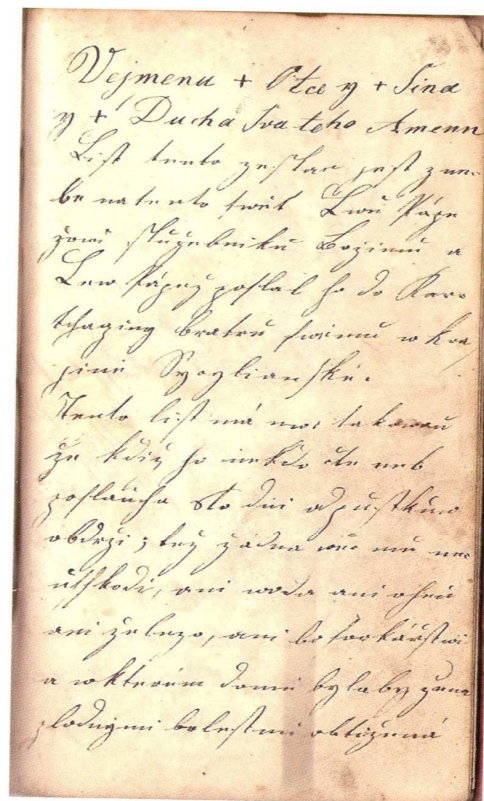 Vejmenu + Otce y + Sina
y + Ducha Sva teho Amenn
List tento zeslan jest z ne-
be na tento swět Lwu Pape
žowi služebniku Bozimu a
Lew Papež poslal ho do Kar-
thaginy bratru swimu w kra
jini Sycylianské.
Tento list má moc takowu
že kdiž ho nekdo čte neb
poslaucha sto dni odpustkuw
obdrži; tež žádna wěc mu ne-
uškodi, ani woda ani oheň
ani železo, ani bosorkárstwi
a w kterém domu bylaby žena
plodnymi bolestmi obtižená